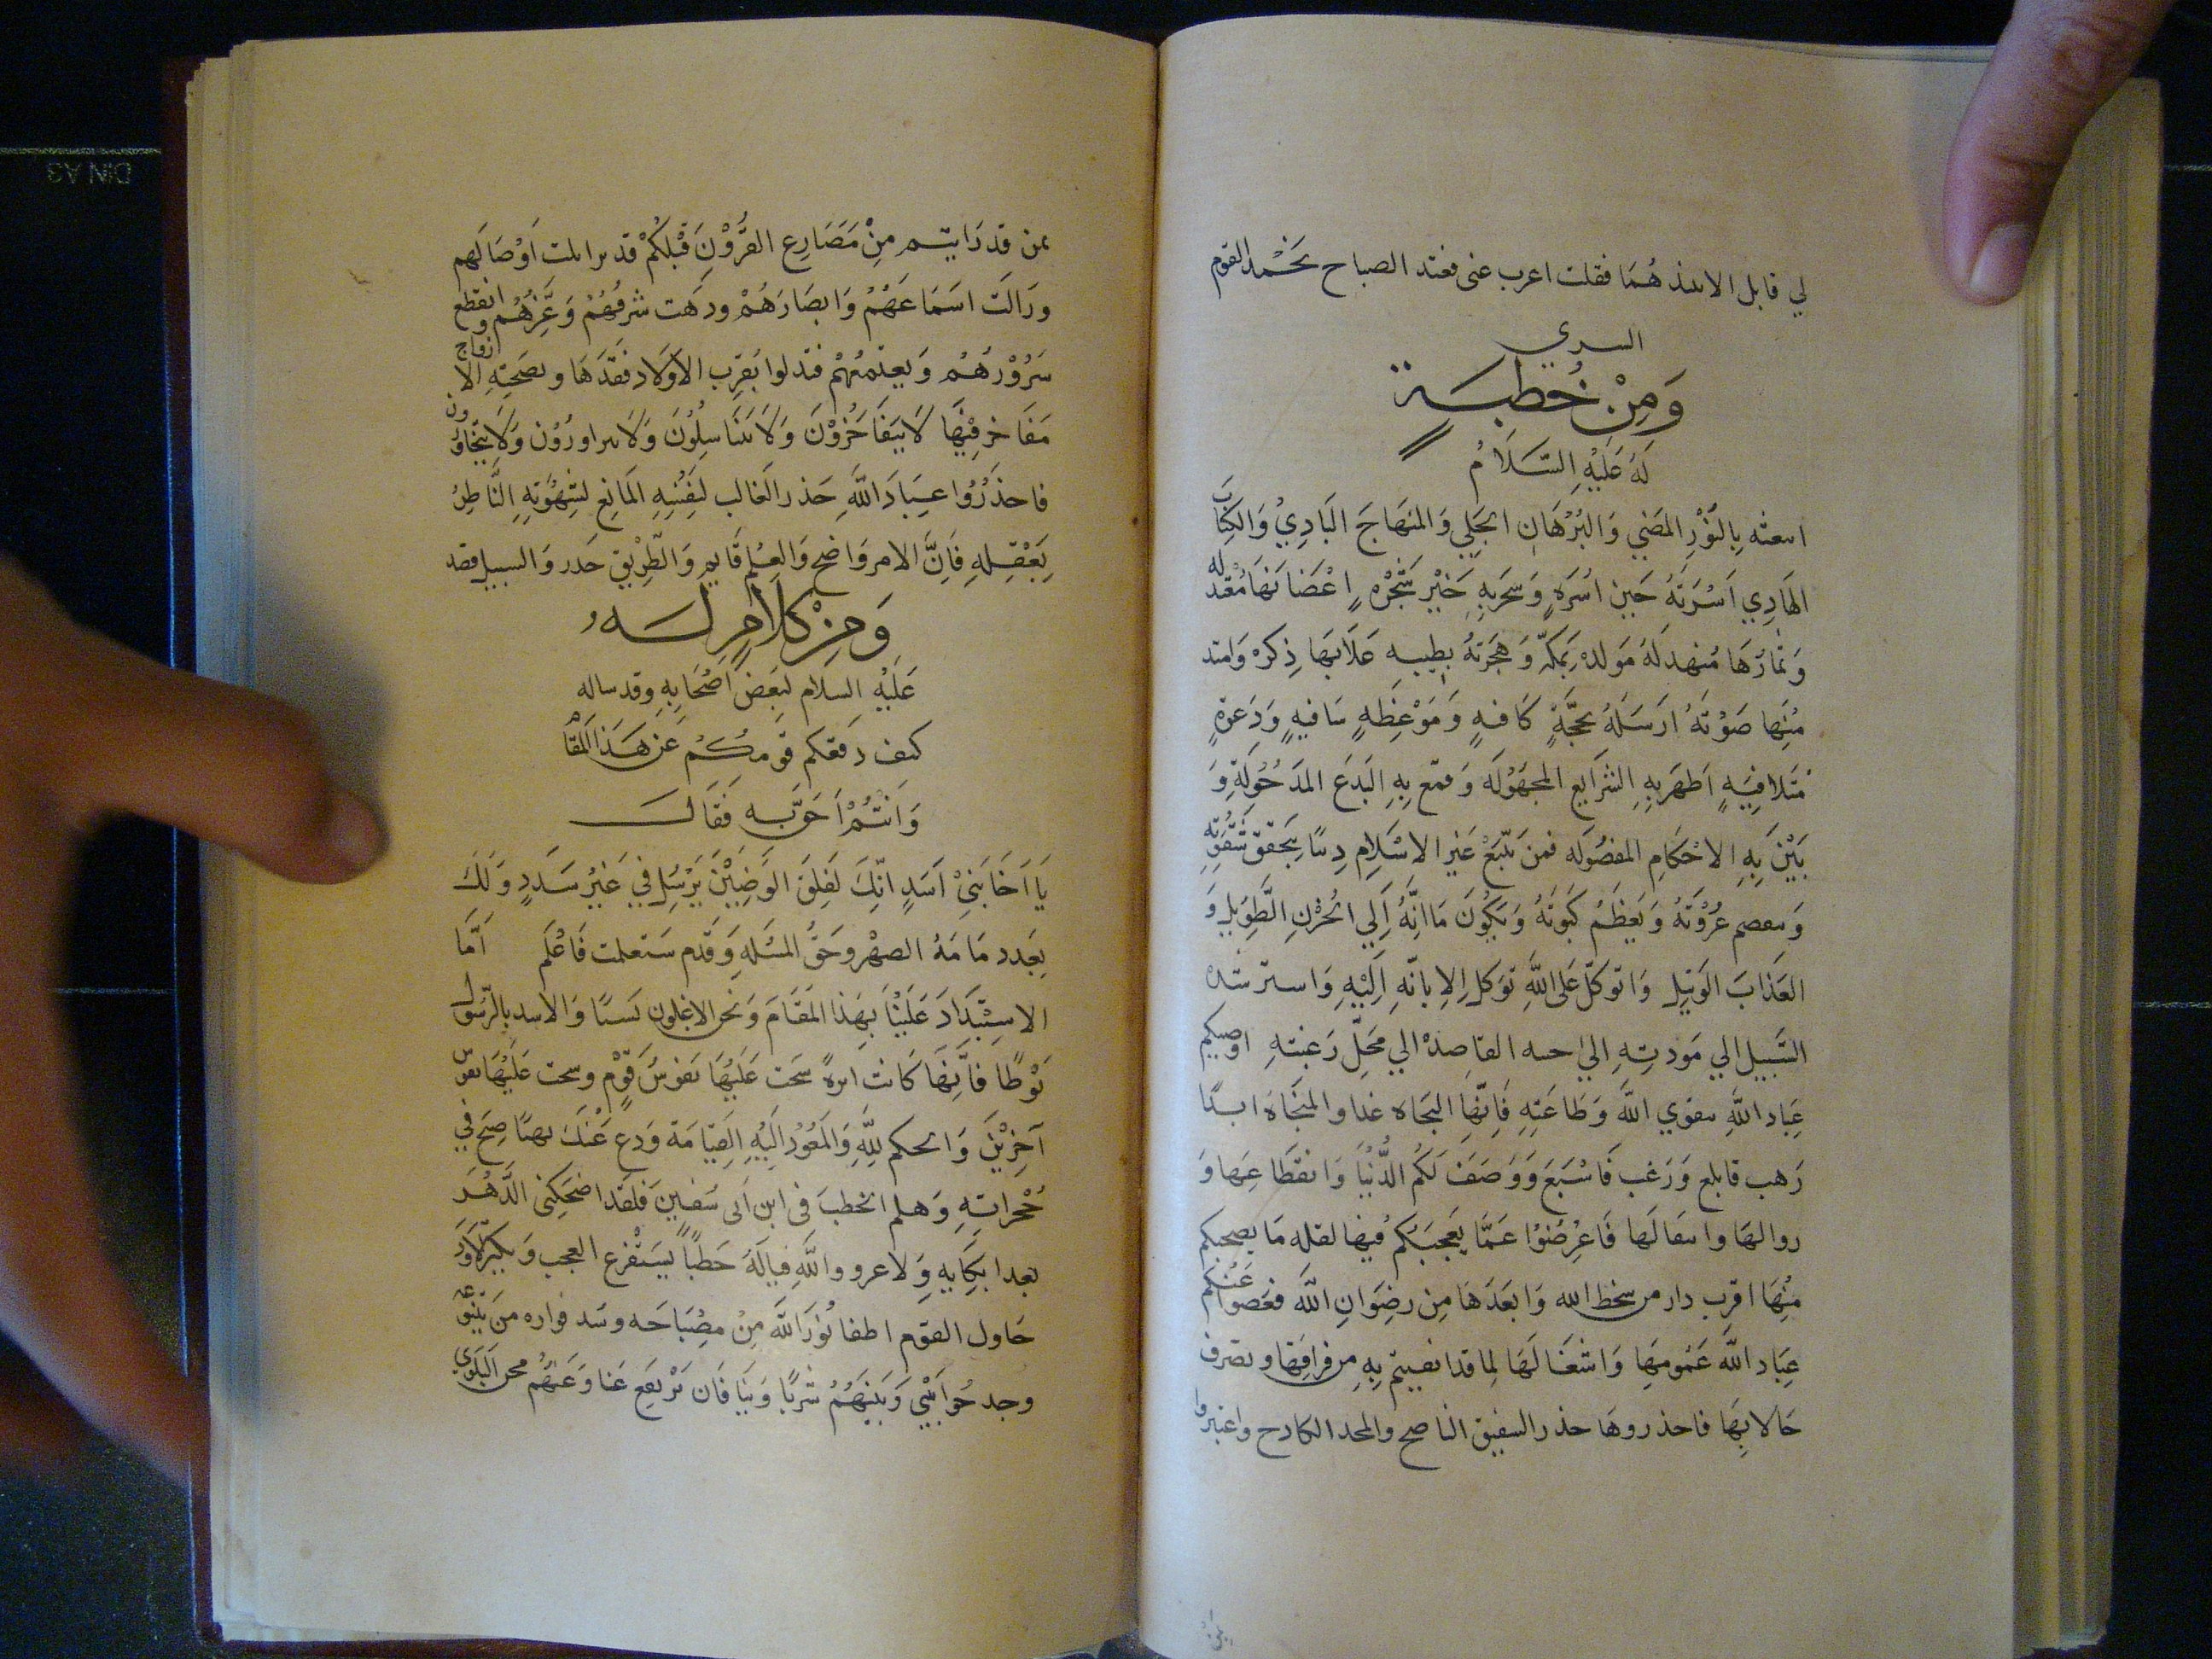 لي قابل الاسد هُمَا فقلت اعرب عنى فعند الصباح يَحْمد القوم
السرى
وَمِنْ خُطبَةٍ
لَهُ عَلَيْهِ السَّلَامُ
اسعثه بِالنُّوْرِ المضي وَالبُرْهَانِ الجَلِي وَالمنهَاجَ البَادِيْ وَالكِتَابَ
الهَادِي اُسْرَتَهُ خَيْن اُسْرَهٍ وَسحربه خَيْر شَجْرَهٍ اغْصَانهَا مُعْتدله
وَثمارُهَا مُتهدلَهُ مَولدهُ بمَكّه وَهجَرتهُ بطيبه عَلَا بَهَا ذِكره وَامتد
مُنهَا صَوْتهُ ارَسَلَهُ بحجَّةٍ كَافيهٍ وَمَوْعِظهٍ سَافيهٍ وَدَعوةٍ
مُتَلَافِيَهٍ اَظهَر بِهِ الشَرَايع المجهَوُلَه وَقمع بِهِ البَدَعَ المدَخُولَةِ وَ
بَيَّنَ بِهِ الاحْكَامِ المفصُوله فمن يتّبغ غَير الاسْلَامِ دِينًا يَتحقق شَقوتِهِ
وَسعصم عُرْوَتهُ وَيَعظَمُ كبوَتهُ وَيَكُونَ مَا انّهُ اِلِي الحُزنِ الطَّوِيلِ وَ
العَذَابَ الوَبيِل وَاتوَكلّ عَلى اللَّهِ توَكل الاِنابَهِ اِلَيْهِ وَاسترشده
السَّبِيل الي مَودتِهِ الي جنته القاصِدَهُ الي مَحَلّ رَغبتهِ اوصيكم
عِبَاد اللَّهِ بتقوي اللَّه وَطَاعَتِهِ فَاِنّهَا النجَاه غدا والمنجَاهَ ابدًا
رَهب فابلع وَرَغب فَاسْبَغَ وَوَصَفَ لَكُم الدُّنْيَا وَانقطَاعِهَا وَ
روالهَا وانتقالَهَا فَاعْرِضُوْا عَمَّا يُعجبَكُم فيهَا لقله مَا يصحبكم
مِنْهَا اقرب دار من سخط الله وَابعَدَهَا مِن رضِوَانِ اللَّه فغضوا عَنْكم
عِبَاد اللَّه غَمُومهَا وَاشغَالَهَا لِما قد ايقنتم بِهِ من فراقِهَا وتصرف
حَالاتِهَا فاحذروهَا حذر الشفيق الناصح والمجد الكادح واعتبروا
بمن قد رَايتم مِنْ مَصَارِعِ القُرُوْنَ قَبْلَكُمْ قد تزايلت اَوْصَالَهم
ورَالَت اسَمَاعَهُمْ وَابصَارَهُمْ ودَهَت شَرفُهُمْ وَعِزّهُمْ وانقطع
سَرُوْرُهُمْ وَنعيمُهُمْ فتدلوا بُقرب الاَوَلَاد فَقَدَهَا وبصَحبَتهِ الازواج
مَفَاخرفِيْهَا لَايتَفَاخُرُوْنَ وَلَا يَتنَاسِلُوُنَ وَلَا يتزاورُوُن وَلَا يتجَاوُرُون
فاحذَرُوا عِبَادَ اللَّهِ حَذر الغَالب لِنَفْسِهِ المَانِع لِشهَوَتِهِ النَّاظِرُ
بِعَقْلِهِ فَاِنَّ الامر وَاضح وَالعِلم قَايم وَالطِّرِيْق جَدد وَالسبيل قصد
وَمِنْ كَلامٍ لَه
عَلَيْهِ السلام لبَعَض اَصْحَابِهِ وقد ساله
كيَف دَفعَكم قَومكُم عَن هَذَا المَقَامْ
وَانتُمْ اَحَقّ به فَقَالَ
يَا اَخَا بَنِيْ اَسَدٍ انّكَ لَقلِقَ الوَضِيَيْنَ يرْسَل في غَيْر سَدَدٍ وَلَكَ
بَعدد مَامَهُ الصهْر وحَقُ المسَئله وَقدم سَتعلمت فَاعْلَم اَمَّا
الاسِتْبَدَادَ عَلَيْنَا بِهَذا المَقَامَ وَنحن الاعلون نَسبًا وَالاسد بالرّسُوْل
نَوْطًا فَانّهَا كَانت اثرةً سحت عَلَيهَا نفوسُ قَوْمٍ وسحت عَلَيْهَا نفوس
آخِرِيْنَ وَالحكم للّهَ وَالمعْوَدُ اليْهِ القِيَامَة وَدع عَنْكَ نهبًا صِحَ في
حُجرَاتِهِ وَهلم الخطبَ فى ابن ابى سُفيٰن فَلقَد اضحَكنى الدَّهْرَ
بعد ابكَايِهِ وَلَا عرو واللَّه فيالهَ خَطبًا يَسَتْفرغ العجب وَيكثر الاوَدَ
حَاول القوم اطفا نُوَر اللَّه مِنْ مصْبَاحَه وسَد فواره من يَنبُوْعه
وجدحُوا بَيْنِي وَبَينهُمْ شربًا وَبيًا فَان تَرْتفع عَنا وَعَنهُم محن البَلوَي